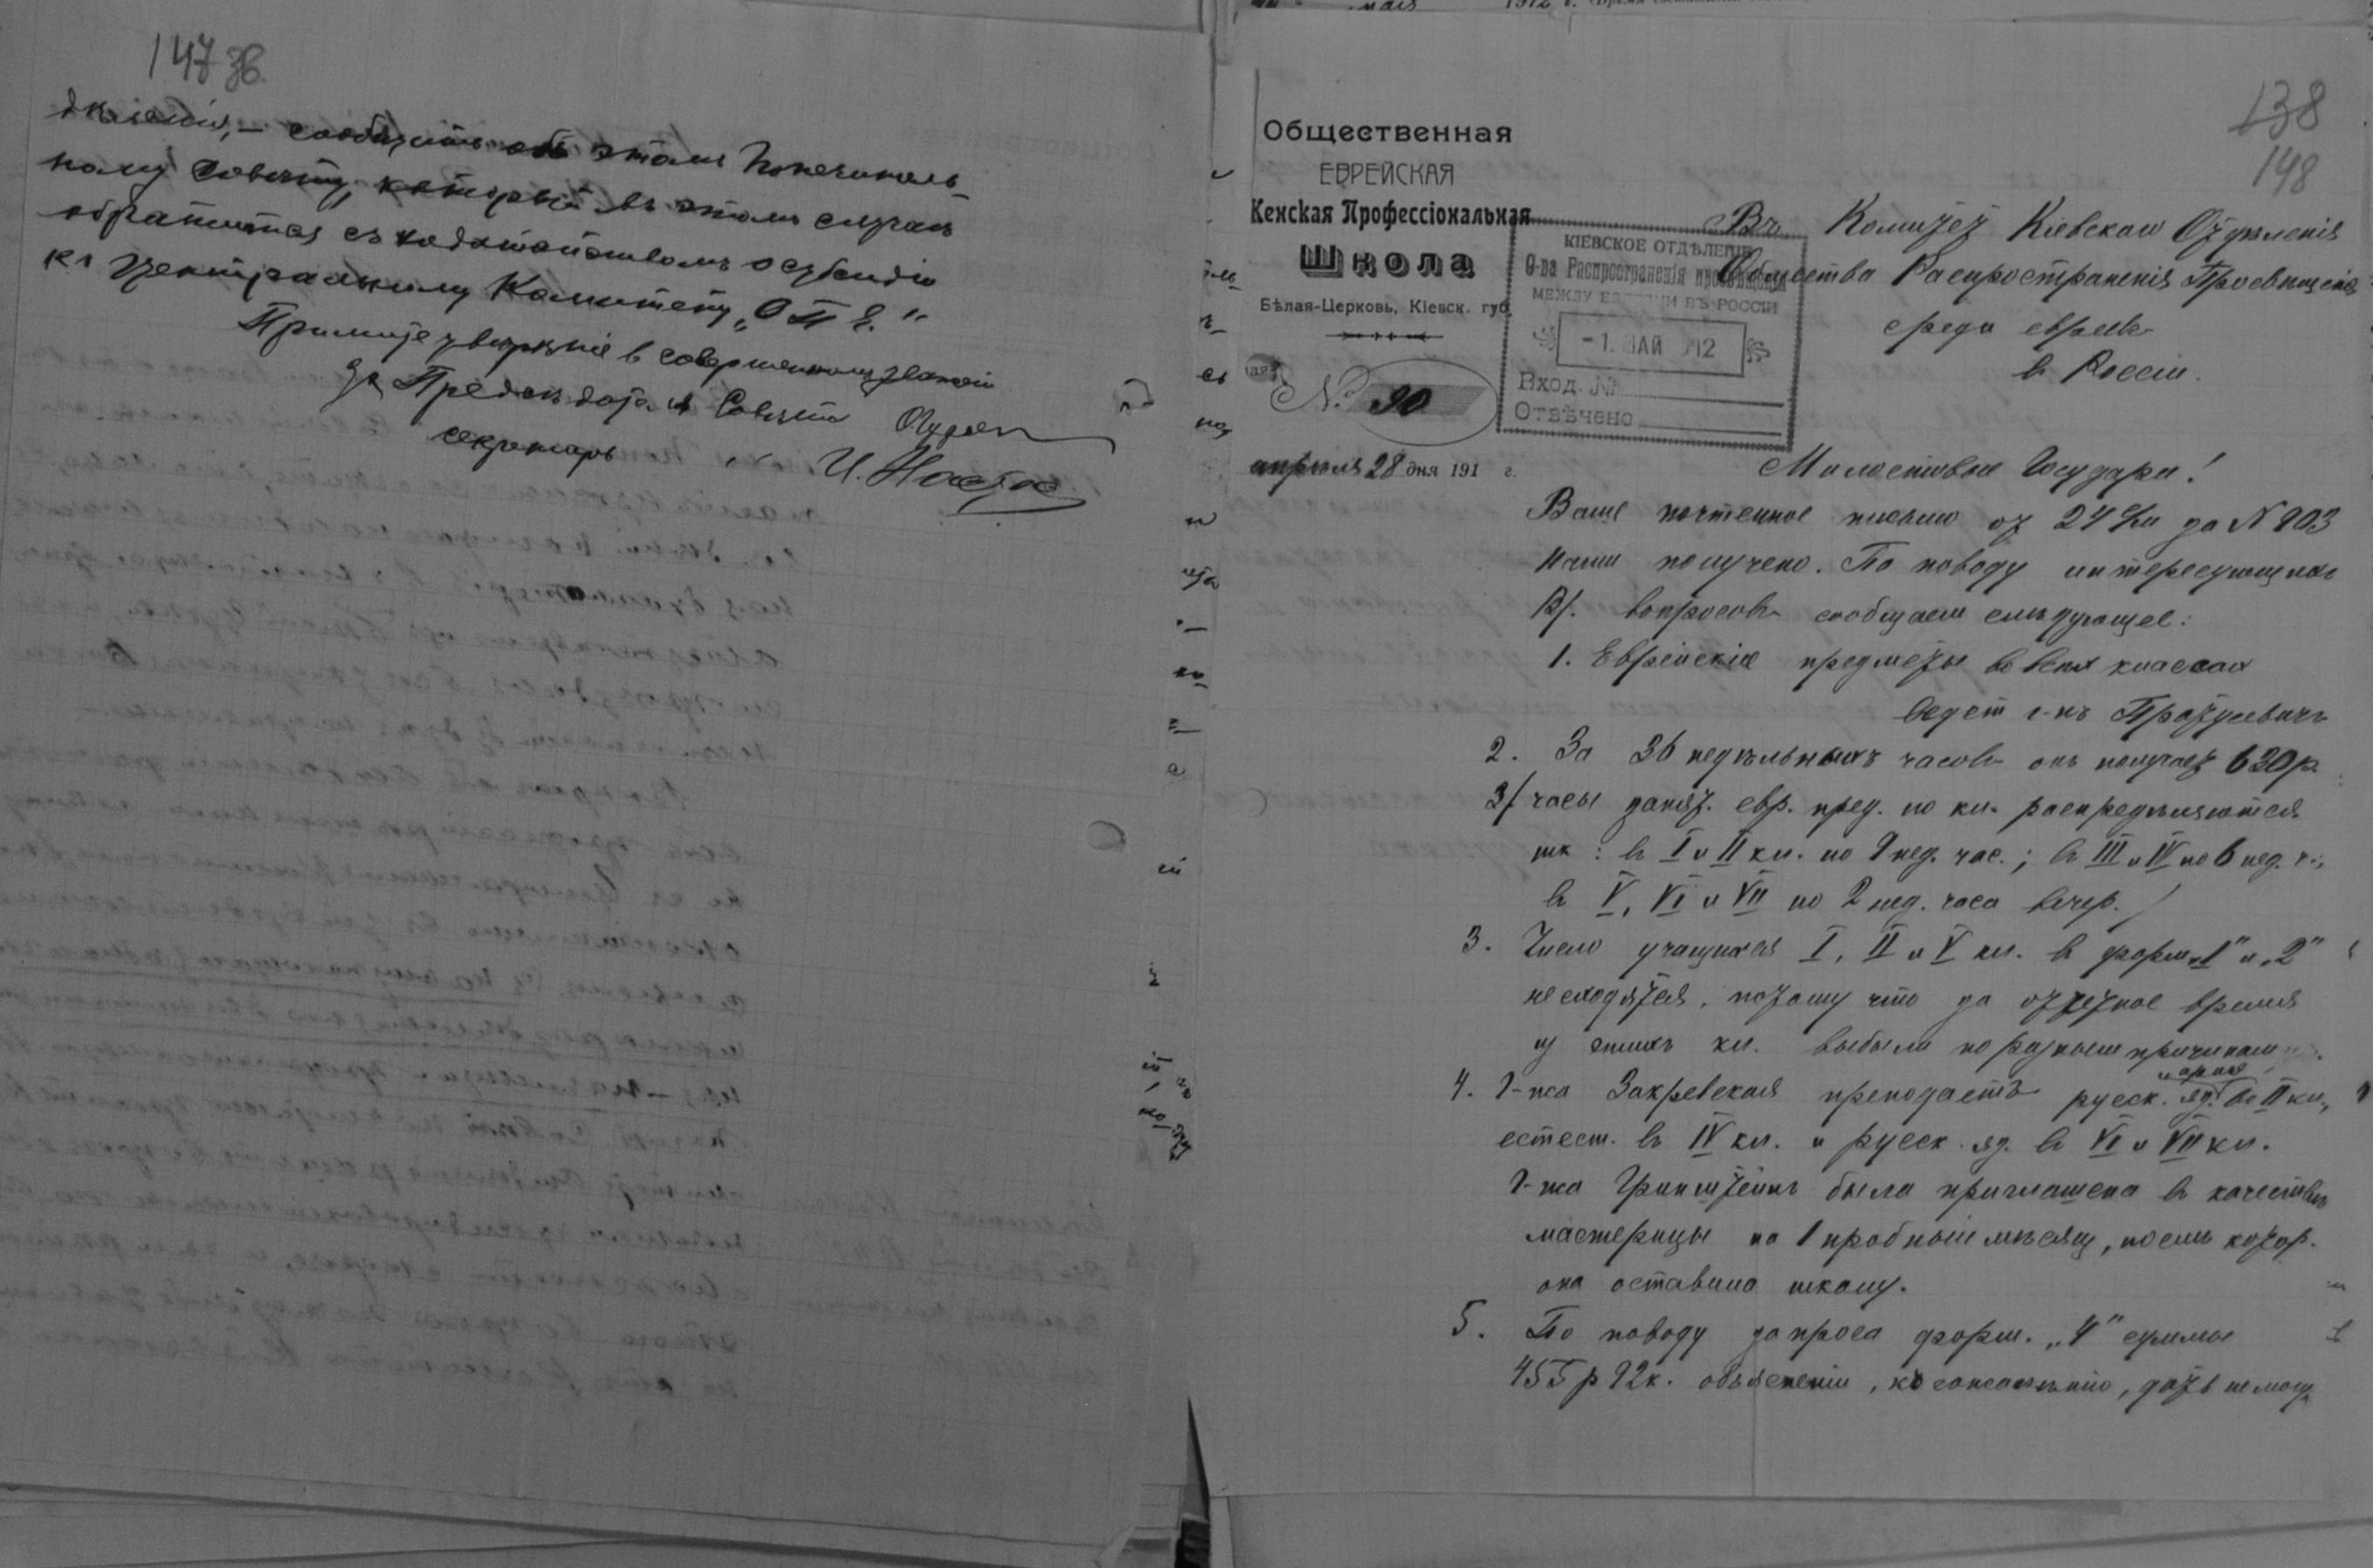 147 зв.
дѣленія, — сообщить объ этомъ Попечитель-
ному Совѣту, который въ этомъ случаѣ
обратится съ ходатайствомъ о субсидіи
къ Центральному Комитету „О П Е."
Примите увѣреніе в совершенномъ уваженіи
За Предсѣдателя Совѣта
секретарь
138
148
Общественная
ЕВРЕЙСКАЯ
Женская Профессіональная
Школа
Бѣлая-Церковь, Кіевск. губ.
№ 90
апрѣля 28 дня 191 г.
КІЕВСКОЕ ОТДѢЛЕНІЕ
О-ва Распространенія просвѣщенія
МЕЖДУ ЕВРЕЯМИ ВЪ РОССІИ
- 1. МАЙ 912
Вход. №
Отвѣчено
Въ Комитет Кіевскаго Отдѣленія
Общества Распространенія Просвѣщенія
среди евреевъ
в Россіи.
Милостивые Государи!
Ваше почтенное письмо от 24 за N 903
нами получено. По поводу интересующихъ
В/. вопросовъ сообщаем слѣдующее:
1. Еврейскіе предметы во всѣх классах
ведет г-нъ
2. За 36 недѣльныхъ часовъ онъ получает 630 р.
3/ часы занят. евр. пред. по кл. распредѣляются
так: в I и II кл. по 9 нед. час.; в III и IV по 6 нед. ч.,
в V, VI и VII по 2 нед. часа вечер. /
3. Число учащихся I, II и V кл. в форм. „1" и „2"
не сходятся, потому что за отчетное время
из этихъ кл. выбыли по разным причинам
4. Г-жа Закревская преподаетъ русск. яз. и ариѳ. во II кл.,
естест. въ IV кл. и русск. яз. в VI и VII кл.
Г-жа Гринштейнъ была приглашена въ качествѣ
мастерицы на 1 пробный мѣсяц, послѣ котор.
она оставила школу.
5. По поводу запроса форм. „4" суммы
455 р 92 к. объясненіи, къ сожалѣнію, дать не можем